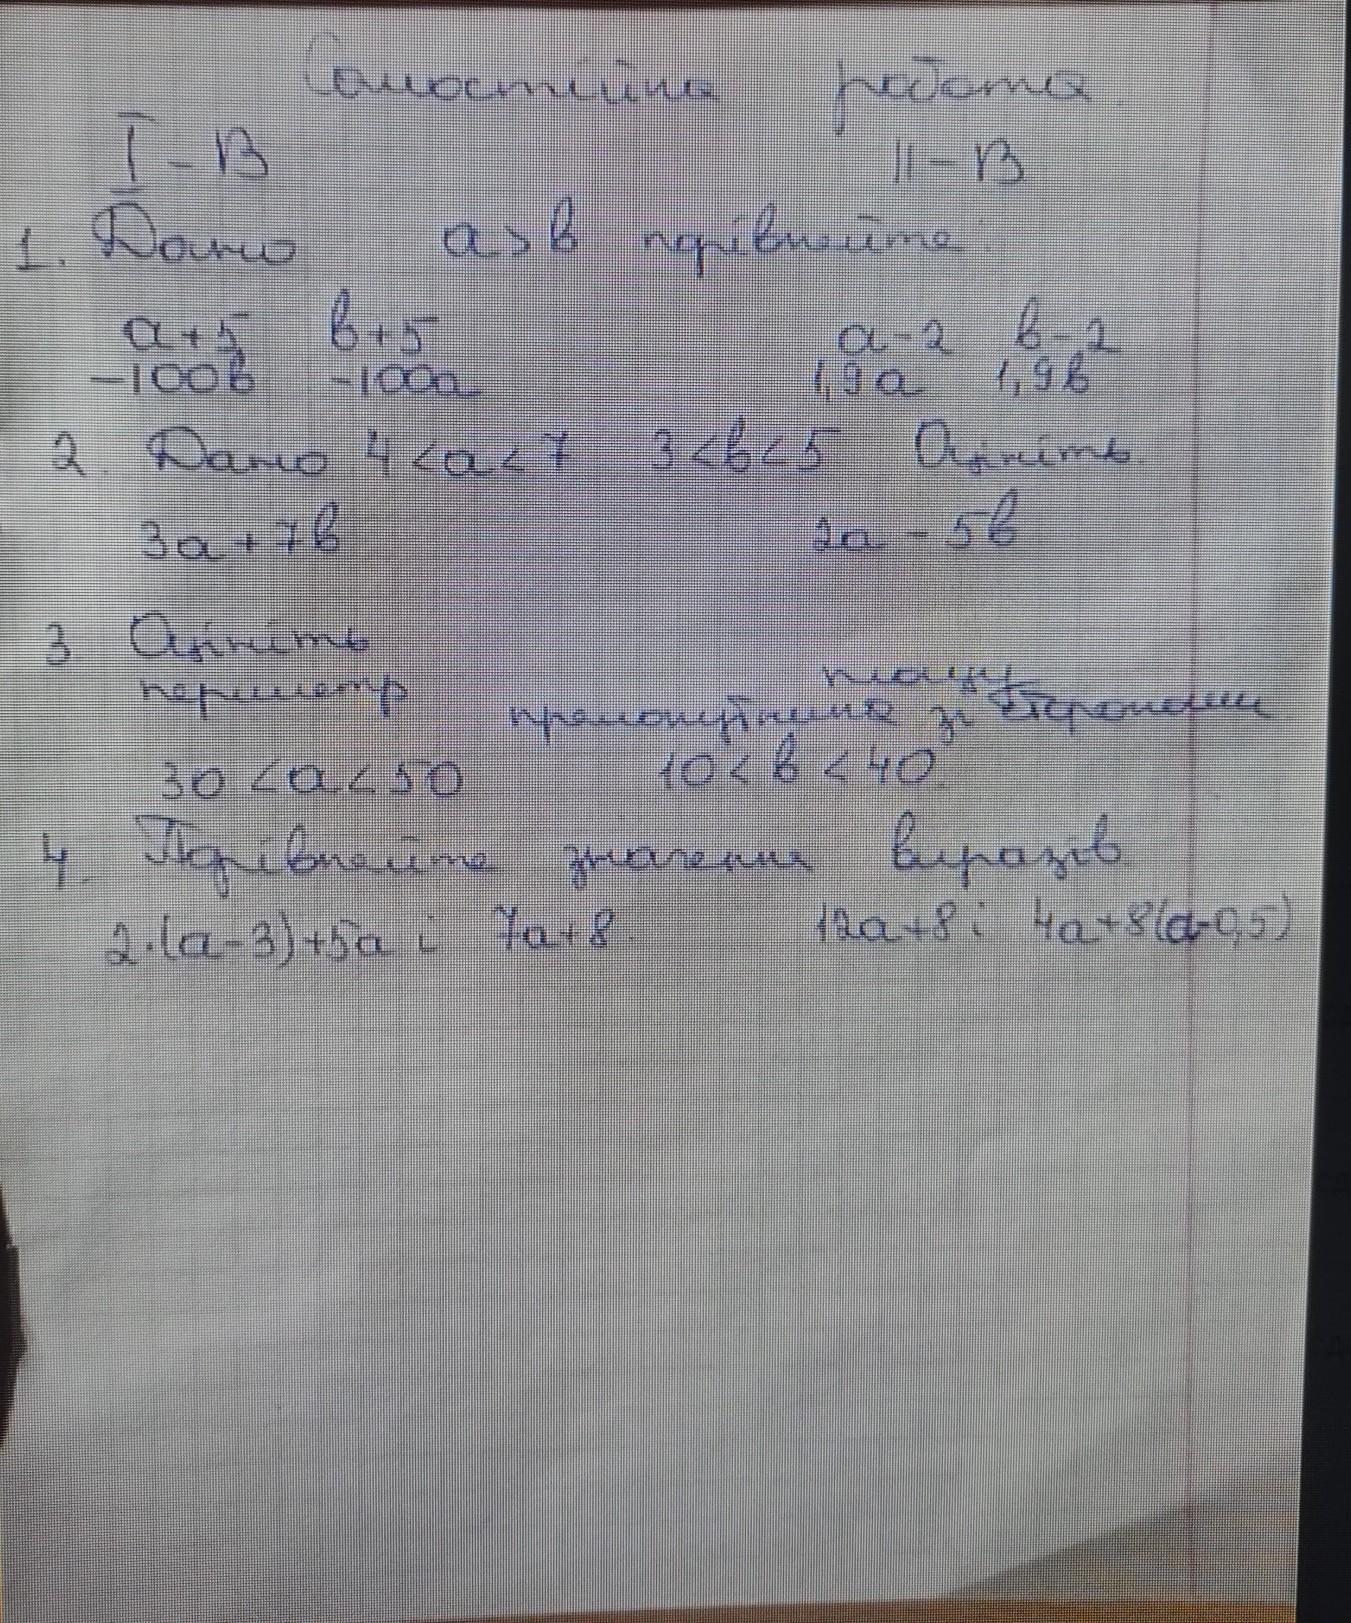 Самостійна робота
I-В II-В
1. Дано a>b порівняйте
a+5 b+5 a-2 b-2
-100b -100a 1,9a 1,9b
2. Дано 4<a<7 3<b<5 Оцініть
3a+7b 2a-5b
3 Оцініть
периметр площу
прямокутника зі сторонами
30<a<50 10<b<40
4. Порівняйте значення виразів
2·(a-3)+5a і 7a+8 12a+8 і 4a+8(a-0,5)